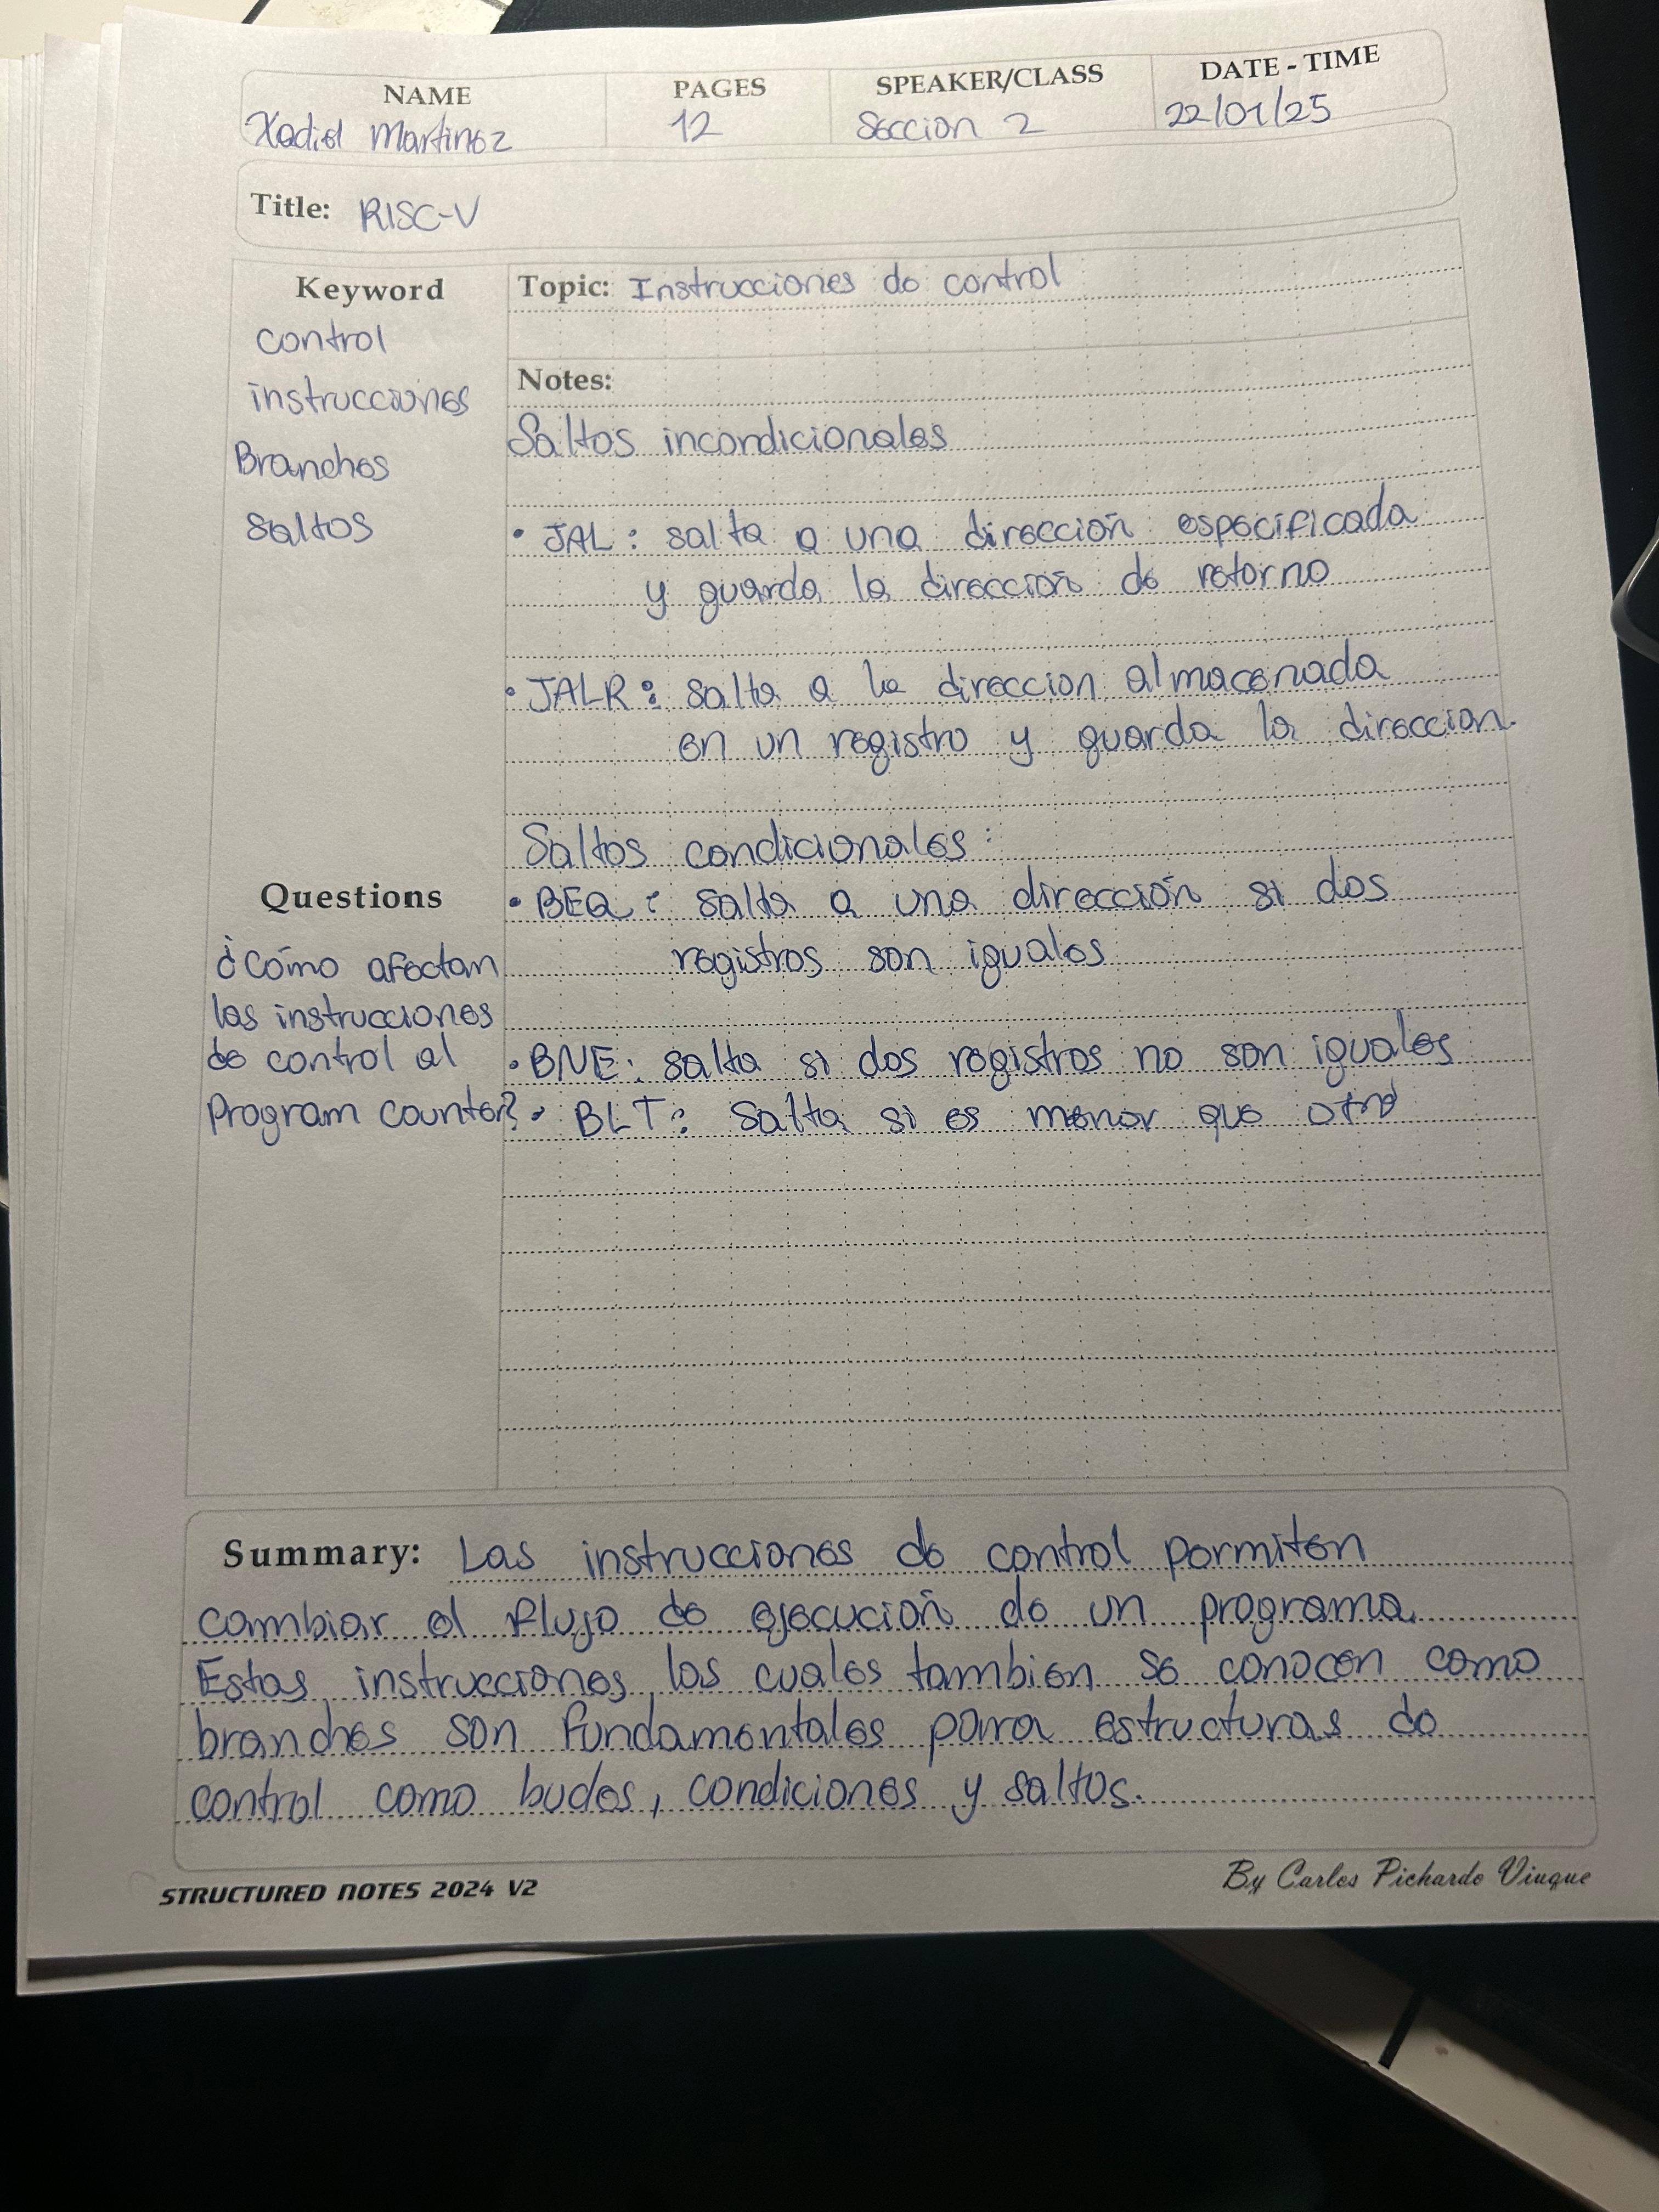 NAME
PAGES
SPEAKER/CLASS
DATE - TIME
Xadiel Martinez
12
Seccion 2
22/01/25
Title: RISC-V
Keyword
control
instrucciones
Branches
saltos
Topic: Instrucciones de control
Notes:
Saltos incondicionales
• JAL: salta a una dirección especificada
y guarda la dirección de retorno
• JALR: salta a la direccion almacenada
en un registro y guarda la direccion.
Saltos condicionales:
• BEQ: salta a una dirección si dos
registros son iguales
• BNE: salta si dos registros no son iguales
• BLT: salta si es menor que otro
Questions
¿Cómo afectan
las instrucciones
de control al
Program counter?
Summary: Las instrucciones de control permiten
cambiar el flujo de ejecución de un programa.
Estas instrucciones, las cuales tambien se conocen como
branches son fundamentales para estructuras de
control como bucles, condiciones y saltos.
STRUCTURED NOTES 2024 V2
By Carlos Pichardo Viuque